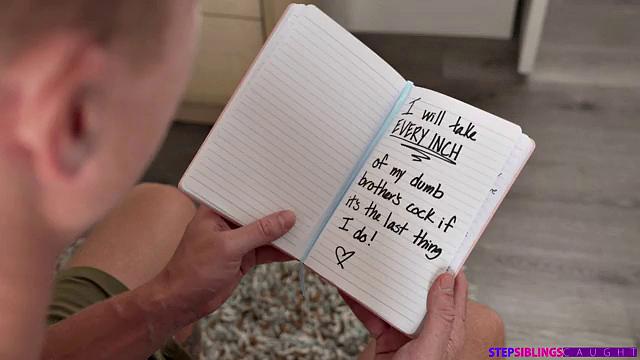 I will take
EVERY INCH
of my dumb
brothers cock if
it's the last thing
I do!
STEPSIBLINGSCAUGHT